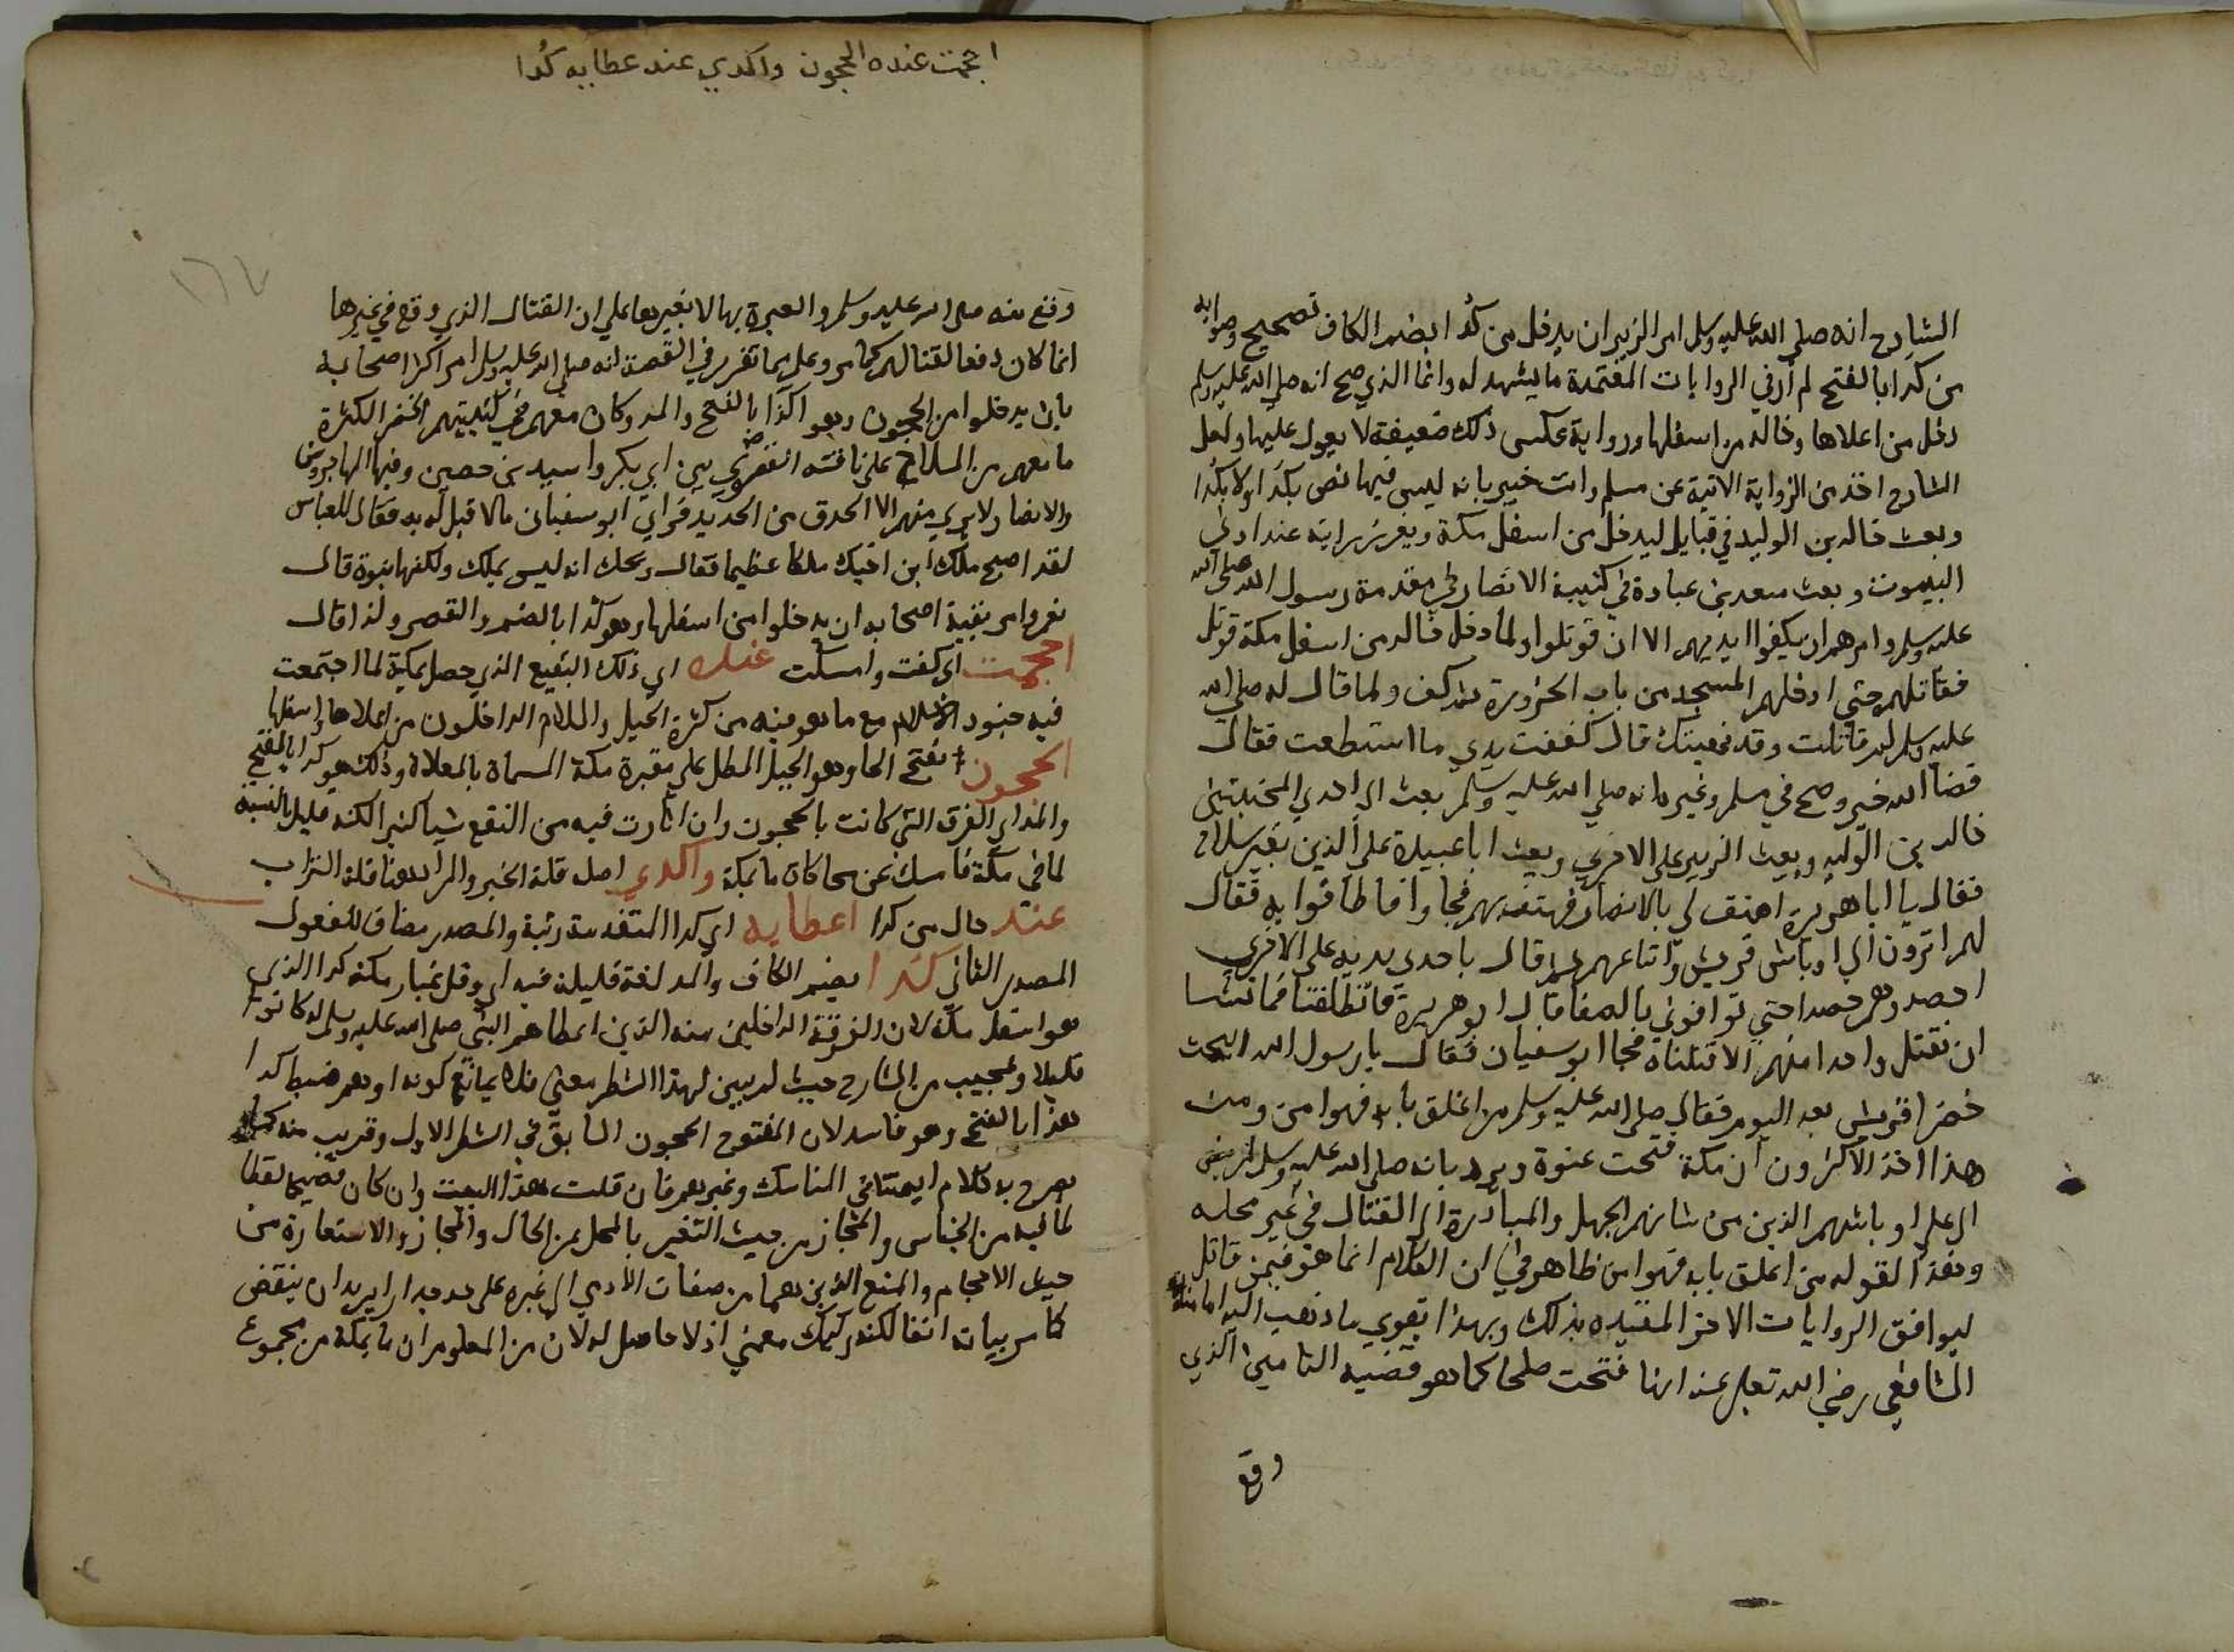 الشارح انه صلي الله عليه وسلم امر الزبير ان يدخل من كدا بضم الكاف تصحيح وصوابه
من كدا بالفتح لم أر في الروايات المعتمدة ما يشهد له وانما الذي صح انه صلي الله عليه وسلم
دخل من اعلاها وخالد من اسفلها ورواية عكس ذلك ضعيفة لا يعول عليها ولعل
الشارح اخذ من الرواية الاتية عن مسلم وانت خبير بانه ليس فيها نص بكدا ولا بكدا
وبعث خالد بن الوليد في قبايل ليدخل من اسفل مكة ويغرز رايته عند ادني
البيوت وبعث سعد بن عبادة في كتيبة الانصار في مقدمة رسول الله صلي الله
عليه وسلم وامرهم ان يكفوا ايديهم الا ان قوتلوا ولما دخل خالد من اسفل مكة قوتل
فقاتلهم حتي ادخلهم المسجد من باب الحزورة ثم كف ولما قال له صلي الله
عليه وسلم لم قاتلت وقد نهيتك قال كففت يدي ما استطعت فقال
قضا الله خير وصح في مسلم وغيره انه صلي الله عليه وسلم بعث الي احدي المجنبتين
خالد بن الوليد وبعث الزبير علي الاخري وبعث ابا عبيدة علي الذين بغير سلاح
فقال يا ابا هريرة اهتف لي بالانصار فهتف بهم فجاوا فاطافوا به فقال
لهم اترون الي اوباش قريش واتباعهم ثم قال باحدي يديه علي الاخري
احصدوهم حصدا حتي توافوني بالصفا قال ابو هريرة فانطلقنا فما نشا
ان نقتل واحدا منهم الا قتلناه فجا ابو سفيان فقال يا رسول الله ابيحت
خضرا قريش بعد اليوم فقال صلي الله عليه وسلم من اغلق بابه فهو امن ومن
هذا اخذ الاكثرون ان مكة فتحت عنوة ويرد بانه صلي الله عليه وسلم
الي اوباشهم الذين من شانهم الجهل والمبادرة الي القتال في غير محله
وهذا القوله من اغلق بابه فهو امن ظاهر في ان الكلام انما هو فيمن قاتل
ليوافق الروايات الاخر المقيده بذلك وبهذا يقوي ما ذهب اليه امامنا
الشافعي رضي الله تعالي عنه انها فتحت صلحا كما هو قضية التامين الذي
وقع
اجمت عنده الحجون واكدي عند عطايه كدا
١٦٧
وقع منه صلي الله عليه وسلم والعبرة بها لا بغيرها علي ان القتال الذي وقع في غيرها
انما كان دفعا لقتالهم كما مر وعلي ما تقرر في القصة انه صلي الله عليه وسلم امر اكثر اصحابه
بان يدخلوا من الحجون وهو اكدا بالفتح والمد وكان معهم في كتيبتهم الخضرا لكثرة
ما معهم من السلاح علي ناقته القصوي بين ابي بكر واسيد بن حصين وفيها المهاجرون
والانصار لا يري منهم الا الحدق من الحديد فراي ابو سفيان مالا قبل له به فقال للعباس
لقد اصبح ملك ابن اخيك ملكا عظيما فقال ويحك انه ليس بملك ولكنها نبوة قال
نعم وامر بقية اصحابه ان يدخلوا من اسفلها وهو كدا بالضم والقصر ولذا قال
احجمت اي كفت وامسكت عنده اي ذلك النقيع الذي حصل بمكة لما اجتمعت
فيه جنود الاسلام مع ما هو منه من كثرة الخيل والسلام الداخلون من اعلاها واسفلها
الحجون بفتح الحا وهو الجبل المطل علي مقبرة مكة المسماة بالمعلاة وذلك هو كدا بالفتح
والمد اي الفرق التي كانت بالحجون وان اثارت فيه من النقع شيا كثيرا لكنه قليل بالنسبة
لما في مكة فامسك عن محاكاة ما بمكة واكدي اصله قلة الخير والمراد هنا قلة التراب
عند حال من كدا اعطايه اي كدا المتقدمة رتبة والمصدر مضاف للمفعول
المصدر الثاني كدا بضم الكاف والمد لغة قليلة فيه اي وقل غبار مكة كدا الذي
هو اسفل مكة لان الفرقة الداخلين منه الذين اعطاهم النبي صلي الله عليه وسلم له كانوا
قليلا وعجيب من الشارح حيث لم يبين لهذا الشطر معني كونه اوهم ضبط كدا
هذا بالفتح وهو فاسد لان المفتوح الحجون السابق في الشطر الاول وقريب منه
يصرح به كلام ايمتنا في المناسك وغيرهم فان قلت هذا البيت وان كان فصيحا لفظا
لما فيه من الجناس والمجاز من حيث التعبير بالمحل عن الحال والمجاز والاستعارة من
حيث الاحجام والمنع الذين هما من صفات الادمي الي غيره علي حد جدارا يريد ان ينقض
كما مر بيانه انفا لكنه ركيك معني اذ لا حاصل له لان من المعلوم ان ما بمكة من مجموع